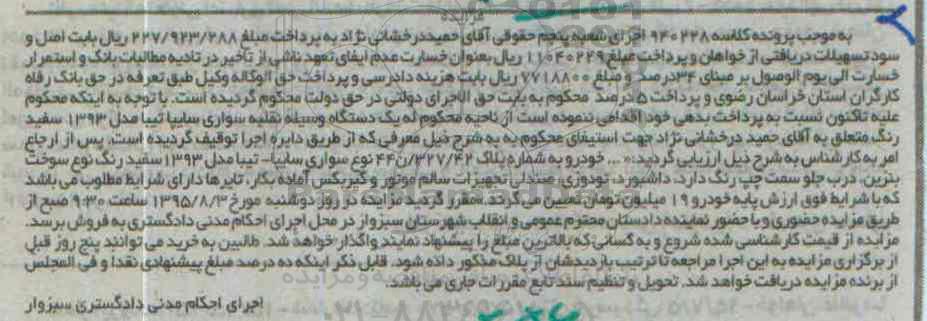 مزایده
به موجب پرونده کلاسه ۹۴۰۲۲۸ اجرای شعبه پنجم حقوقی آقای حمید درخشانی نژاد به پرداخت مبلغ ۲۲۷/۹۲۳/۲۸۸ ریال بابت اصل و
سود تسهیلات دریافتی از خواهان و پرداخت مبلغ ۱۱۰۴۰۲۴۹ ریال بعنوان خسارت عدم ایفای تعهد ناشی از تأخیر در تادیه مطالبات بانک و استمرار
خسارت الی یوم الوصول بر مبنای ۳۴درصد و مبلغ ۷۷۱۸۸۰۰ ریال بابت هزینه دادرسی و پرداخت حق الوکاله وکیل طبق تعرفه در حق بانک رفاه
کارگران استان خراسان رضوی و پرداخت ۵درصد محکوم به بابت حق الاجرای دولتی در حق دولت محکوم گردیده است. با توجه به اینکه محکوم
علیه تاکنون نسبت به پرداخت بدهی خود اقدامی ننموده است از ناحیه محکوم له یک دستگاه وسیله نقلیه سواری سایپا تیبا مدل ۱۳۹۳ سفید
رنگ متعلق به آقای حمید درخشانی نژاد جهت استیفای محکوم به به شرح ذیل معرفی که از طریق دایره اجرا توقیف گردیده است. پس از ارجاع
امر به کارشناس به شرح ذیل ارزیابی گردید:« ... خودرو به شماره پلاک ۴۴ن/۳۲۷/۴۲ نوع سواری سایپا- تیبا مدل ۱۳۹۳ سفید رنگ نوع سوخت
بنزین، درب جلو سمت چپ رنگ دارد، داشبورد، تودوزی، صندلی تجهیزات سالم موتور و گیربکس آماده بکار، تایرها دارای شرایط مطلوب می باشد
که با شرایط فوق ارزش پایه خودرو ۱۹ میلیون تومان تعیین می گردد. »مقرر گردید مزایده در روز دوشنبه مورخ ۱۳۹۵/۸/۳ ساعت ۹:۳۰ صبح از
طریق مزایده حضوری و با حضور نماینده دادستان محترم عمومی و انقلاب شهرستان سبزوار در محل اجرای احکام مدنی دادگستری به فروش برسد.
مزایده از قیمت کارشناسی شده شروع و به کسانی که بالاترین مبلغ را پیشنهاد نمایند واگذار خواهد شد. طالبین به خرید می توانند پنج روز قبل
از برگزاری مزایده به این اجرا مراجعه تا ترتیب بازدیدشان از پلاک مذکور داده شود. قابل ذکر اینکه ده درصد مبلغ پیشنهادی نقدا و فی المجلس
از برنده مزایده دریافت خواهد شد. تحویل و تنظیم سند تابع مقررات جاری می باشد.
اجرای احکام مدنی دادگستری سبزوار